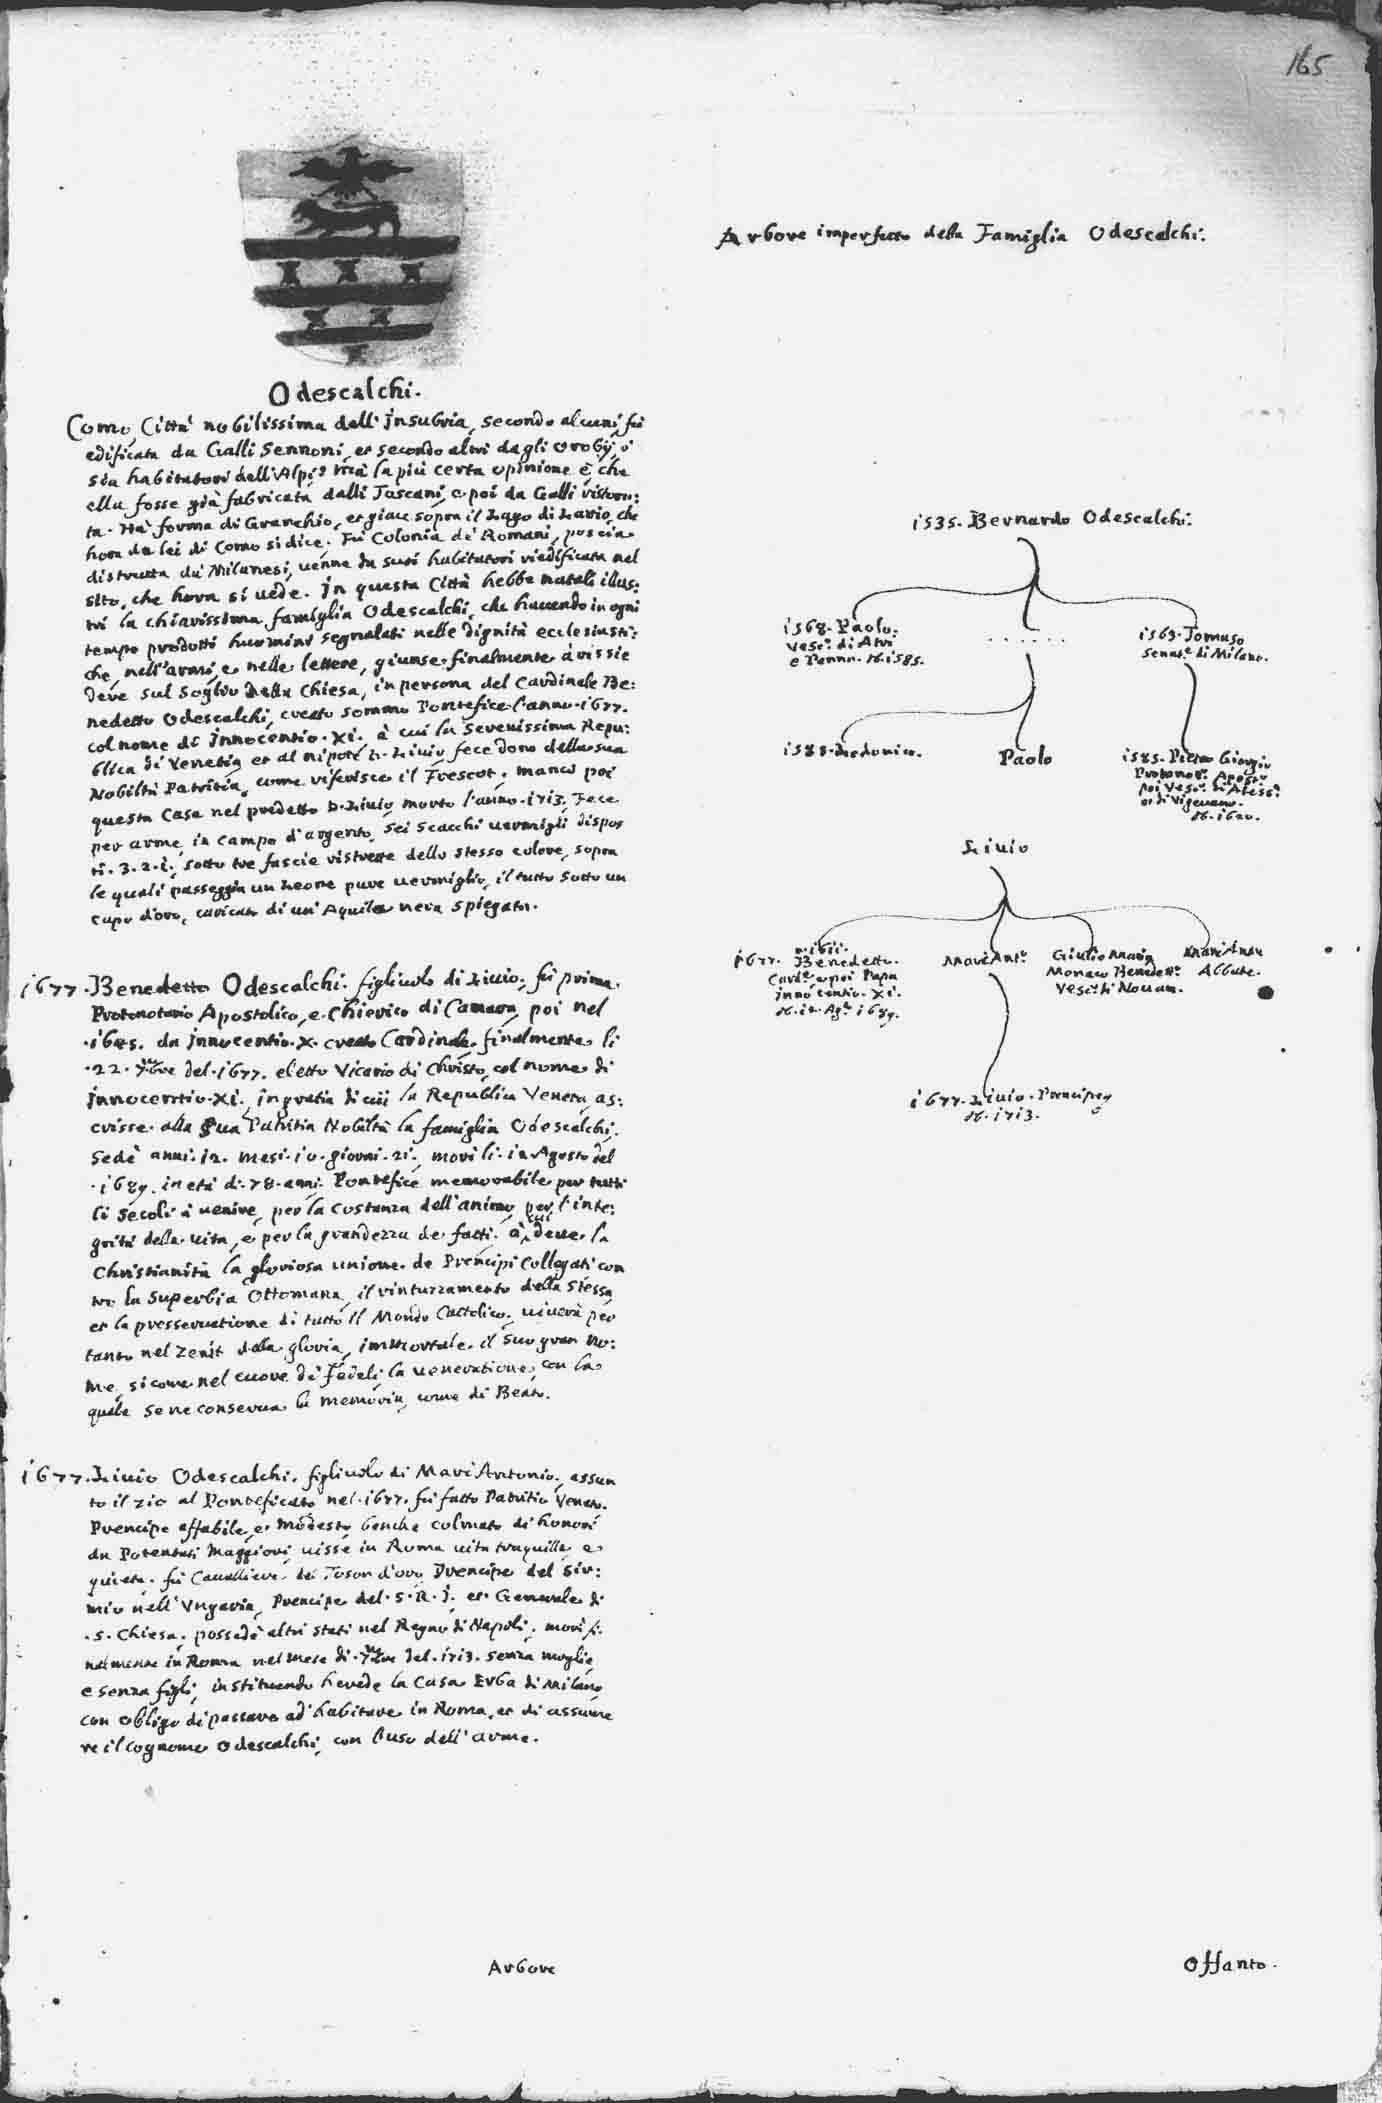 165
Odescalchi.
Como, Città nobilissima dell'Insubria, secondo alcuni, fù
edificata da Galli Sennoni, et secondo altri dagli Orobij, ò
sia habitatori dell'Alpi: mà la più certa opinione è, che
ella fosse già fabricata dalli Toscani, e poi da Galli ristora:
ta. Hà forma di Granchio, et giace sopra il Lago di Lario, che
hora da lei di Como si dice. Fù Colonia de' Romani, poscia
distrutta da' Milanesi, venne da suoi habitatori riedificata nel
sito, che hora si vede. In questa Città hebbe natali illus:
tri la chiarissima famiglia Odescalchi, che havendo in ogni
tempo prodotti huomini segnalati nelle dignità ecclesiasti:
che, nell'armi, e nelle lettere, giunse finalmente à
deve sul Soglio della Chiesa, in persona del Cardinale Be:
nedetto Odescalchi, creato sommo Pontefice l'anno .1677.
col nome di Innocentio .XI. à cui la Serenissima Repu:
blica di Venetia et al nipote D. Livio fece dono della sua
Nobiltà Patritia, come riferisce il Frescot; mancò poi
questa Casa nel predetto D. Livio, morto l'anno .1713. Fece
per arme, in campo d'argento, sei scacchi vermigli dispos
ti .3.2.1., sotto tre fascie ristrette dello stesso colore, sopra
le quali passeggia un Leone pure vermiglio, il tutto sotto un
capo d'oro, caricato di un'Aquila nera spiegata.
1677. Benedetto Odescalchi. figliuolo di Livio, fù prima
Protonotario Apostolico, e Chierico di Camera, poi nel
.1645. da Innocentio .X. creato Cardinale, finalmente li
.22. 7bre del .1677. eletto Vicario di Christo, col nome di
Innocentio .XI., in gratia di cui la Republica Veneta, as:
crisse alla sua Patritia Nobiltà la famiglia Odescalchi.
Sedè anni .12. mesi .10. giorni .21., morì li .12 Agosto del
.1689. in età di .78. anni. Pontefice memorabile per tutti
li secoli à venire, per la costanza dell'animo, per l'inte:
grità della vita, e per la grandezza de fatti. à cui deve la
Christianità la gloriosa unione de Prencipi Collegati con
tro la superbia Ottomana, il rinturzamento della stessa,
et la preservatione di tutto il Mondo Cattolico; viverà per
tanto nel zenit della gloria, immortale il suo gran no:
me, si come nel cuore de' Fedeli, la veneratione, con la
quale se ne conserva la memoria, come di Beato.
1677. Livio Odescalchi. figliuolo di Mari'Antonio, assun
to il zio al Ponteficato nel .1677. fù fatto Patritio Veneto.
Prencipe affabile, e modesto, benche colmato di honori
da Potentati Maggiori, visse in Roma vita tranquilla, e
quieta. fù Cavalliere del Toson d'oro, Prencipe del Sir:
mio nell'Ungaria, Prencipe del .S.R.I. et Generale di
.S. Chiesa, possedè altri stati nel Regno di Napoli, morì fi:
nalmente in Roma nel mese di .7bre del .1713. senza moglie,
e senza figli, instituendo herede la Casa Erba di Milano,
con obligo di passare ad habitare in Roma, et di assume
re il cognome Odescalchi, con l'uso dell'arme.
Arbore
Arbore imperfetto della Famiglia Odescalchi.
1535. Bernardo Odescalchi.
1568. Paolo.
Vesc.o di Atri
e Penna. M.1585.
. . . . . .
1563. Tomaso
Senat.e di Milano.
1588. Lodovico.
Paolo
1585. Pietro Giorgio
Protonot.o Aposto
poi Vesc.o di Aless.a
et di Vigevano.
M.1620.
Livio
n.1611.
1677. Benedetto.
Card.e e poi Papa
Innocentio .XI.
M.12. Ag.o 1689.
Mari'Ant.o
Giulio Maria
Monaco Benedett.o
Vesc.o di Novara.
Abbate.
1677. Livio. Prencipe
M.1713.
Offanto.